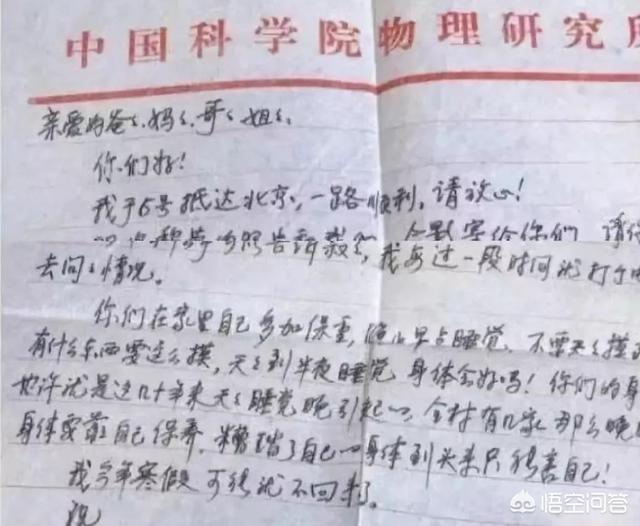 中国科学院物理研究所
亲爱的爸爸妈妈、哥哥姐姐、
你们好!
我于5号抵达北京,一路顺利,请放心!
寄给你们 请
去问问情况。 我每过一段时间就打
你们在家里自己多加保重,晚上早点睡觉、不要天天摸
有什么东西要这么摸,天天到半夜睡觉 身体会好吗!你们的身
也许就是这几十年来天天睡觉晚引起的,全村有几家那么晚
身体要靠自己保养,糟蹋了自己的身体到头来只能害自己!
我今年寒假可能就不回来了。
祝
悟空问答